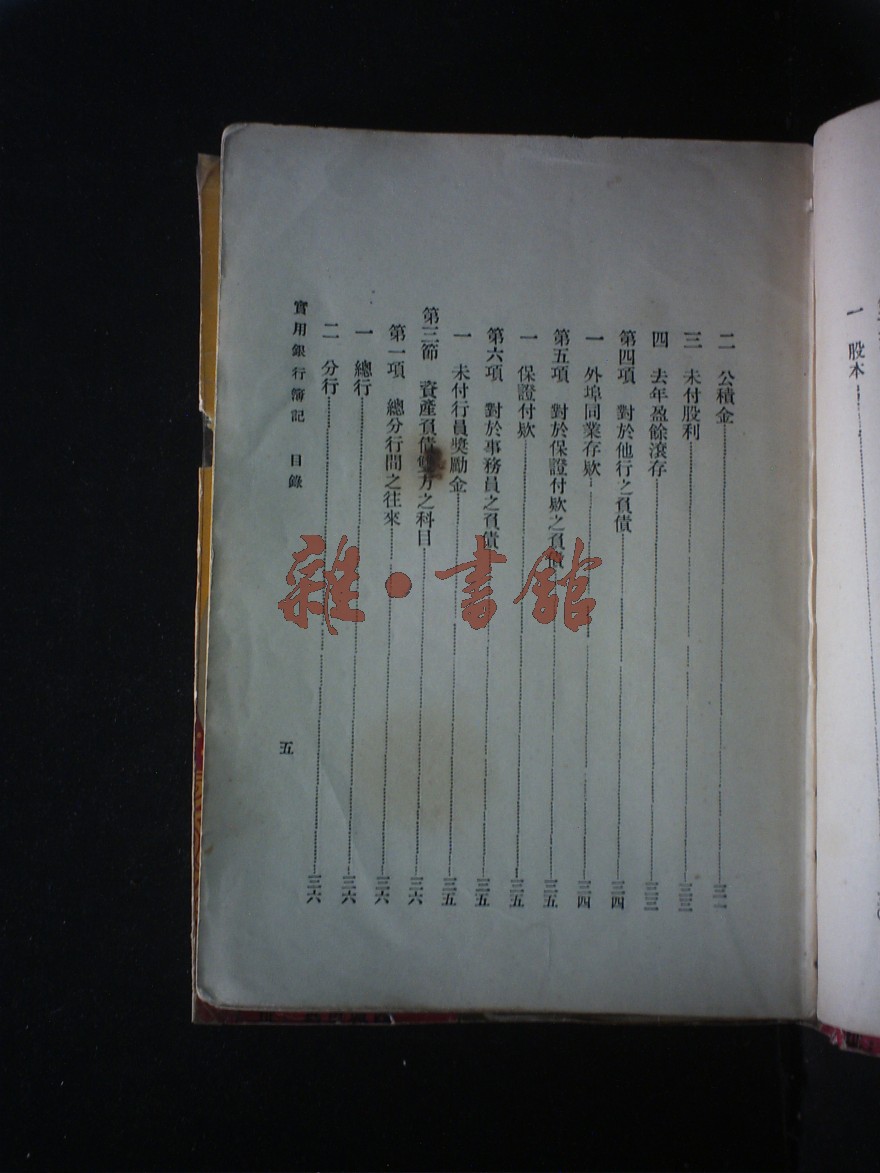 一　股本
二　公積金……三二
三　未付股利……三三
四　去年盈餘滾存……三三
第四項　對於他行之負債……三四
一　外埠同業存欵……三四
第五項　對於保證付欵之負債……三五
一　保證付欵……三五
第六項　對於事務員之負債……三五
一　未付行員獎勵金……三五
第三節　資產負債雙方之科目……三六
第一項　總分行間之往來……三六
一　總行……三六
二　分行……三六
實用銀行簿記　目錄
五
雜·書館